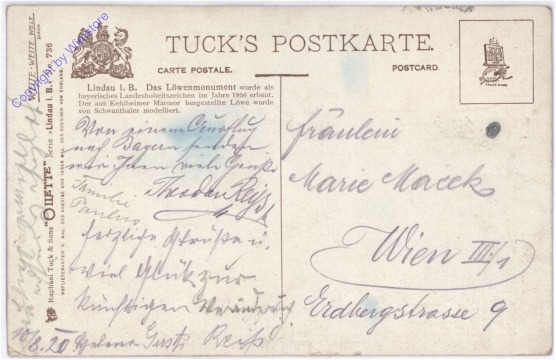 TUCK'S POSTKARTE.
CARTE POSTALE.
POSTCARD.
Lindau i. B. Das Löwenmonument wurde als
bayerisches Landeshoheitszeichen im Jahre 1856 erbaut.
Der aus Kehlheimer Marmor hergestellte Löwe wurde
von Schwanthaler modelliert.
Von einem Ausflug
nach Bayern senden
wir Ihnen viele Grüsse
Familie
Paulus
Theodor Reiss
herzliche Grüße u.
viel Glück zur
künftigen Veränderung
8. 20 Helene Gusti Reiss
Fräulein
Marie Macek
Wien III/1
Erdbergstrasse 9
Raphael Tuck & Sons "OILETTE" Serie "Lindau i. B." No. 736
Copyright by Winstore
TRADE MARK